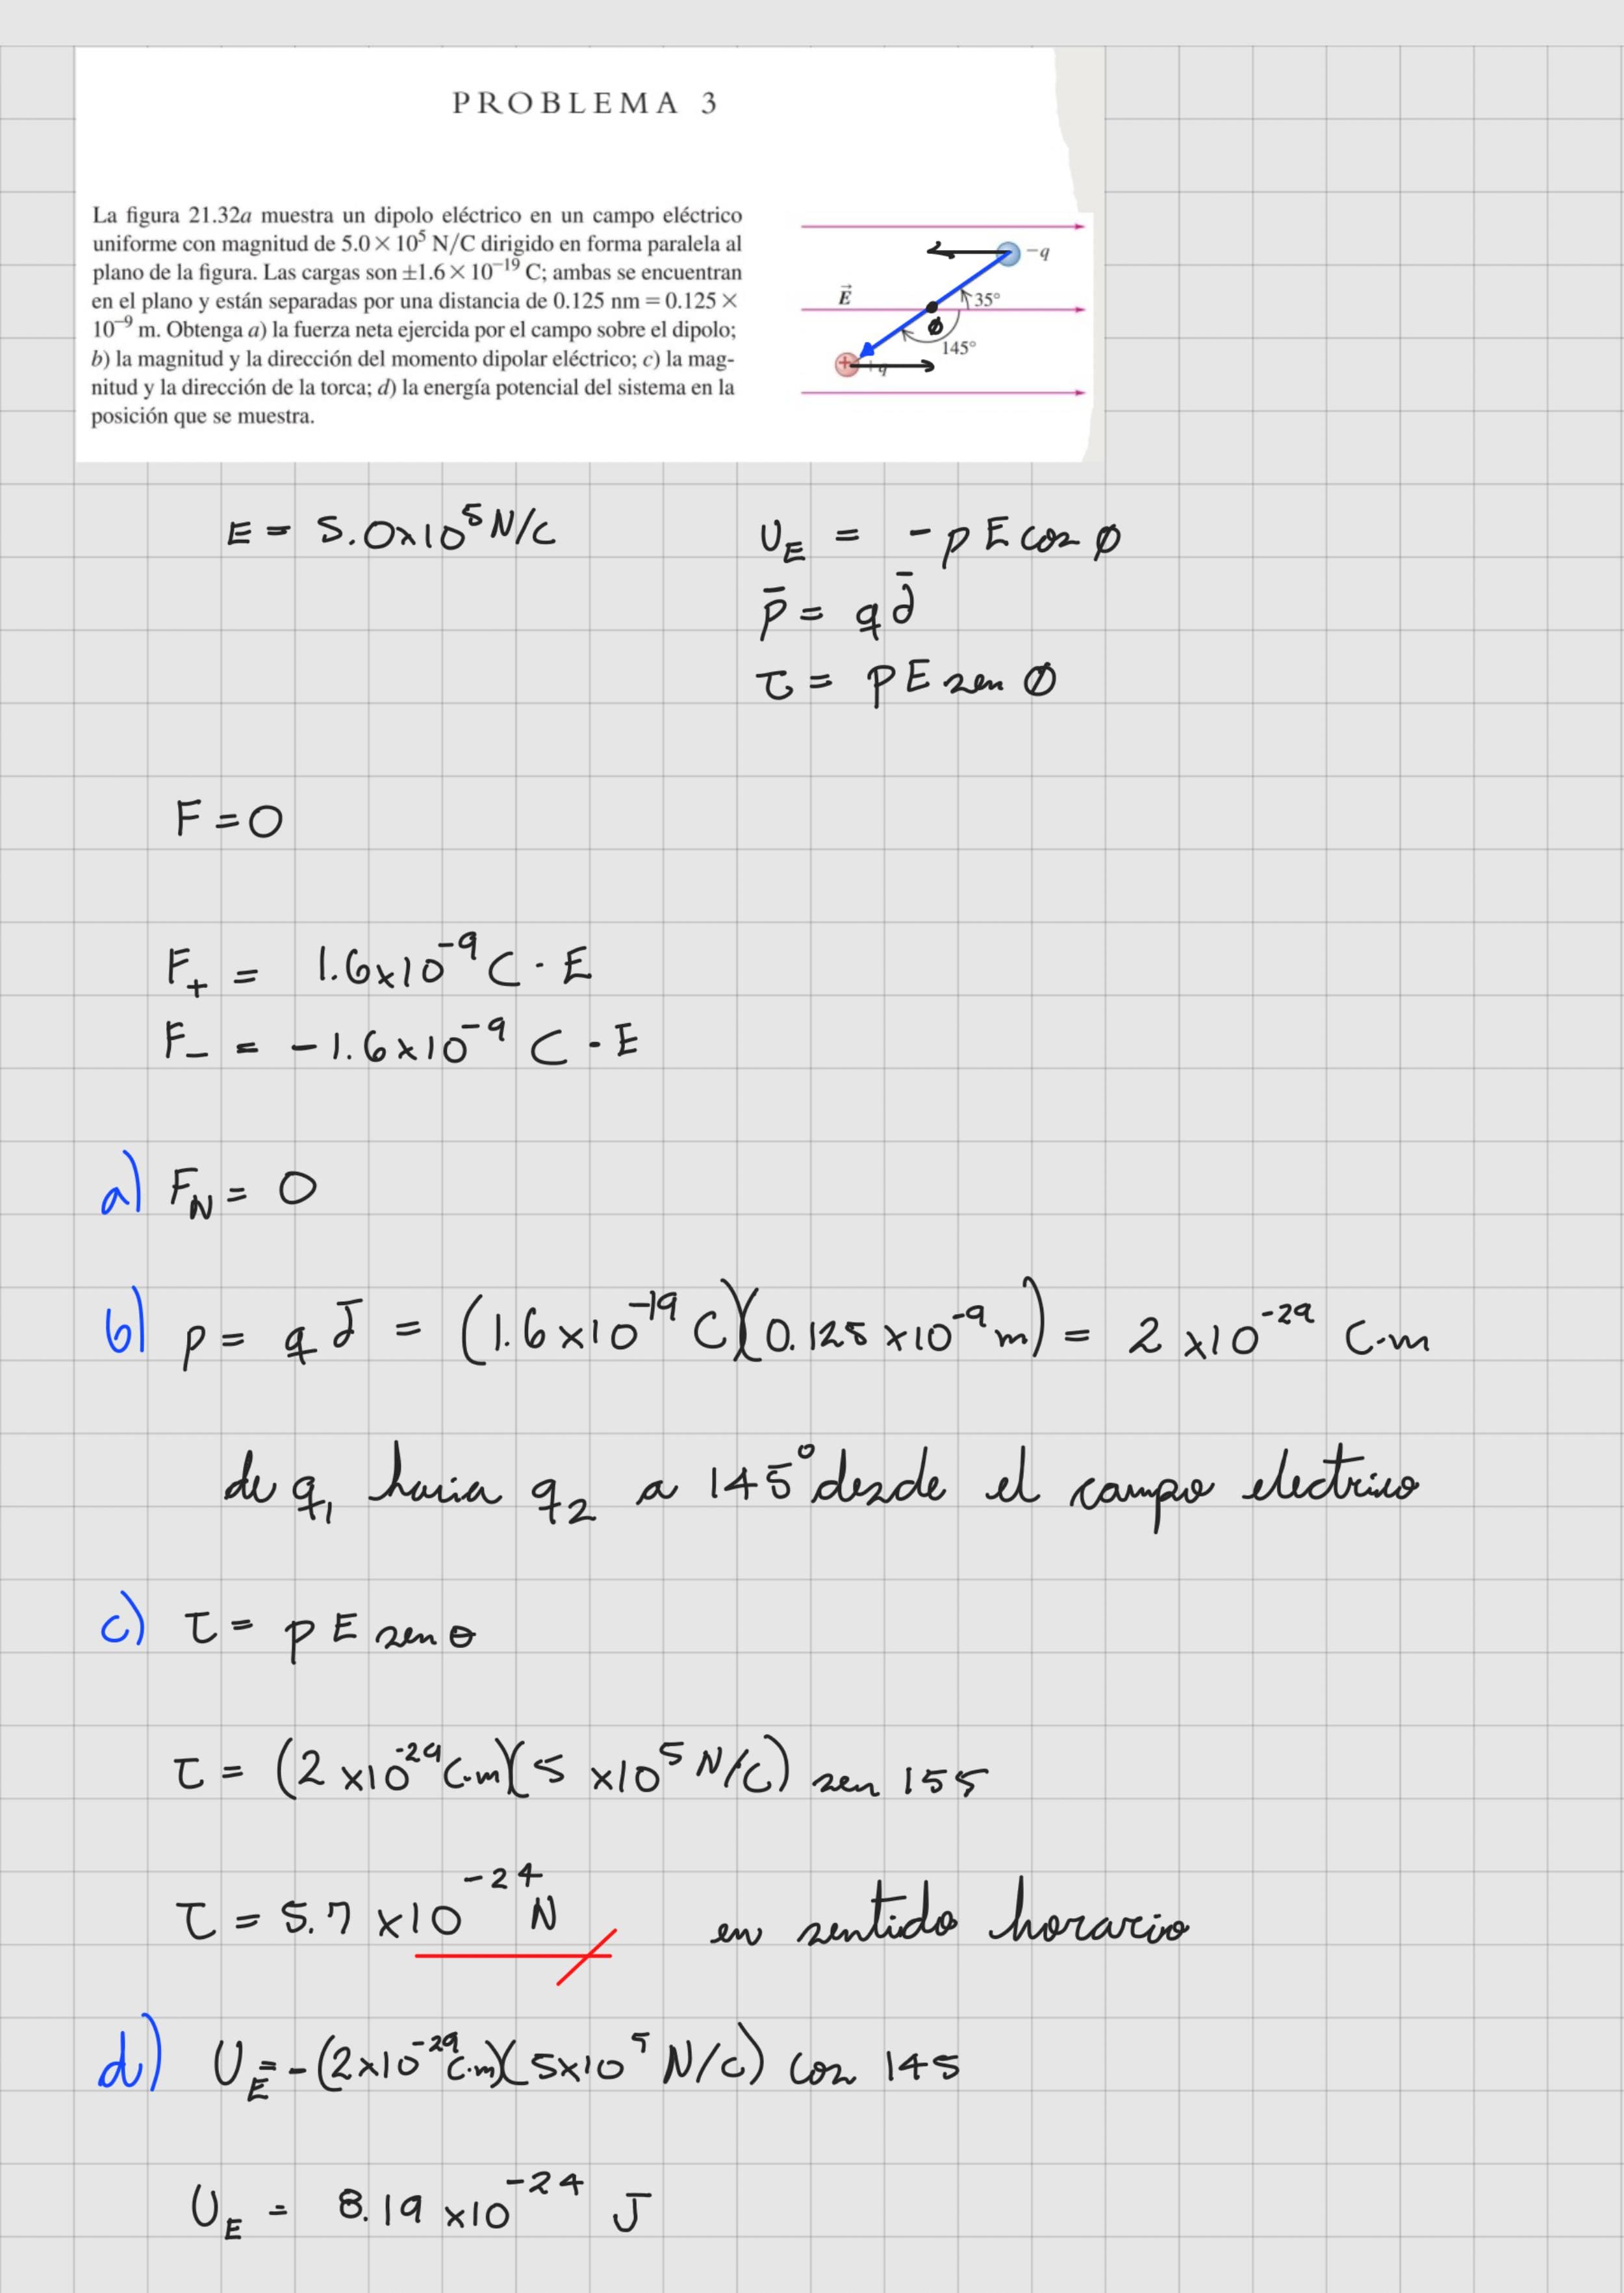 PROBLEMA 3
La figura 21.32a muestra un dipolo eléctrico en un campo eléctrico
uniforme con magnitud de 5.0 × 10⁵ N/C dirigido en forma paralela al
plano de la figura. Las cargas son ±1.6 × 10⁻¹⁹ C; ambas se encuentran
en el plano y están separadas por una distancia de 0.125 nm = 0.125 ×
10⁻⁹ m. Obtenga a) la fuerza neta ejercida por el campo sobre el dipolo;
b) la magnitud y la dirección del momento dipolar eléctrico; c) la mag-
nitud y la dirección de la torca; d) la energía potencial del sistema en la
posición que se muestra.
−q
E⃗
35°
ø
145°
+
+q
E = 5.0x10⁵ N/C
U_E = - p E cos ø
p̄ = q d̄
τ = p E sen ø
F = 0
F₊ = 1.6x10⁻⁹ C · E
F₋ = - 1.6x10⁻⁹ C · E
a) F_N = 0
b) p = q d̄ = (1.6x10⁻¹⁹ C)(0.125x10⁻⁹ m) = 2 x10⁻²⁹ C·m
de q₁ hacia q₂ a 145° desde el campo electrico
c) τ = p E sen θ
τ = (2 x10⁻²⁹ C·m)(5 x10⁵ N/C) sen 155
τ = 5.7 x10⁻²⁴ N en sentido horario
d) U_E = - (2x10⁻²⁹ C·m)(5x10⁵ N/C) cos 145
U_E = 8.19 x10⁻²⁴ J